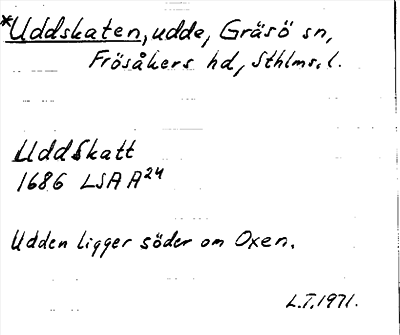 *Uddskaten, udde, Gräsö sn,
Frösåkers hd, Sthlms. l.
UddSkatt
1686 LSA A24
Udden ligger söder om Oxen.
L.T. 1971.